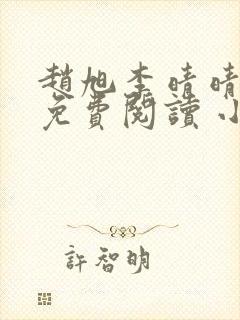 趙旭李晴晴
免費閱讀小
許智明